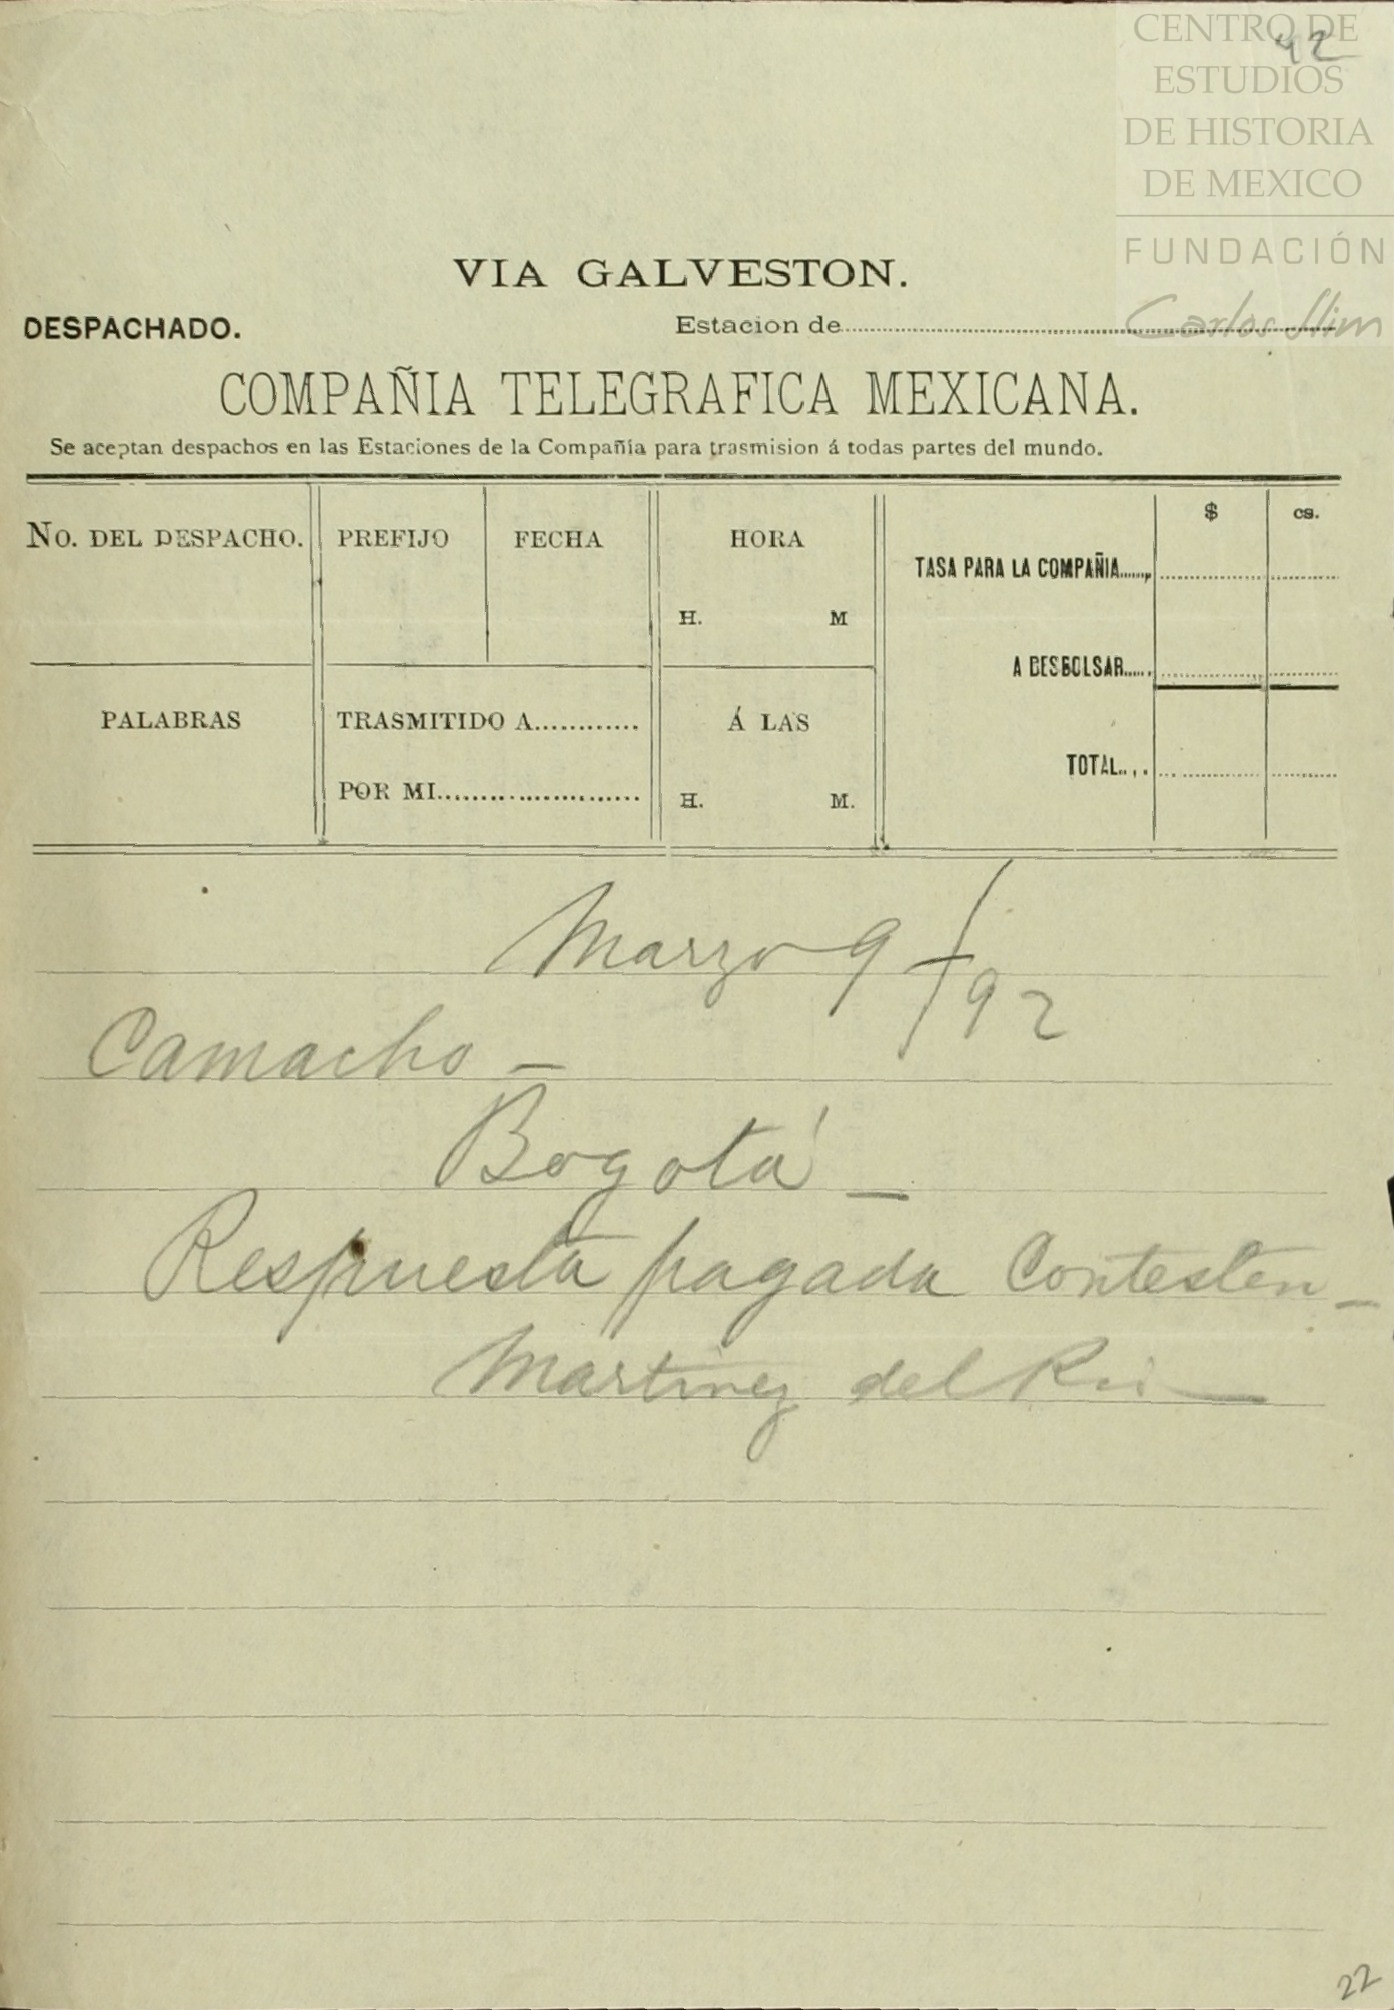 42
CENTRO DE
ESTUDIOS
DE HISTORIA
DE MEXICO
FUNDACIÓN
Carlos Slim
VIA GALVESTON.
DESPACHADO.
Estacion de
COMPAÑIA TELEGRAFICA MEXICANA.
Se aceptan despachos en las Estaciones de la Compañía para trasmision á todas partes del mundo.
No. DEL DESPACHO. PREFIJO FECHA HORA $ cs.
TASA PARA LA COMPAÑIA
H. M
A DESBOLSAR
PALABRAS TRASMITIDO A Á LAS
TOTAL
POR MI H. M.
Marzo 9/92
Camacho –
Bogotá –
Respuesta pagada Contesten –
Martinez del Rio
22